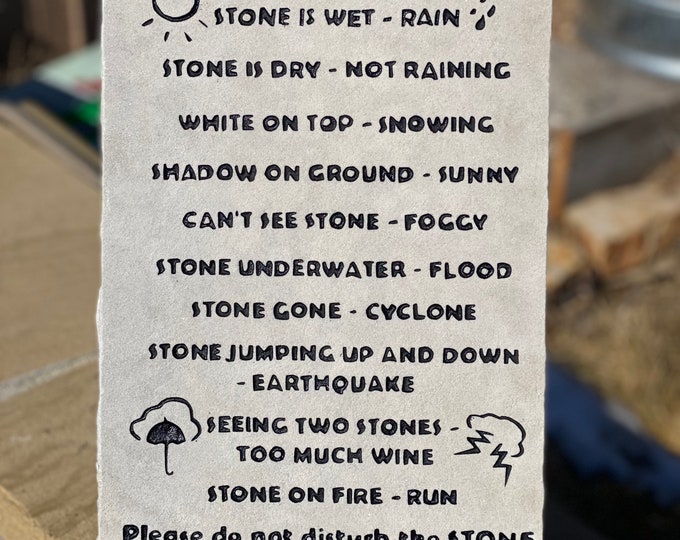 STONE IS WET - RAIN
STONE IS DRY - NOT RAINING
WHITE ON TOP - SNOWING
SHADOW ON GROUND - SUNNY
CAN'T SEE STONE - FOGGY
STONE UNDERWATER - FLOOD
STONE GONE - CYCLONE
STONE JUMPING UP AND DOWN
- EARTHQUAKE
SEEING TWO STONES -
TOO MUCH WINE
STONE ON FIRE - RUN
Please do not disturb the STONE